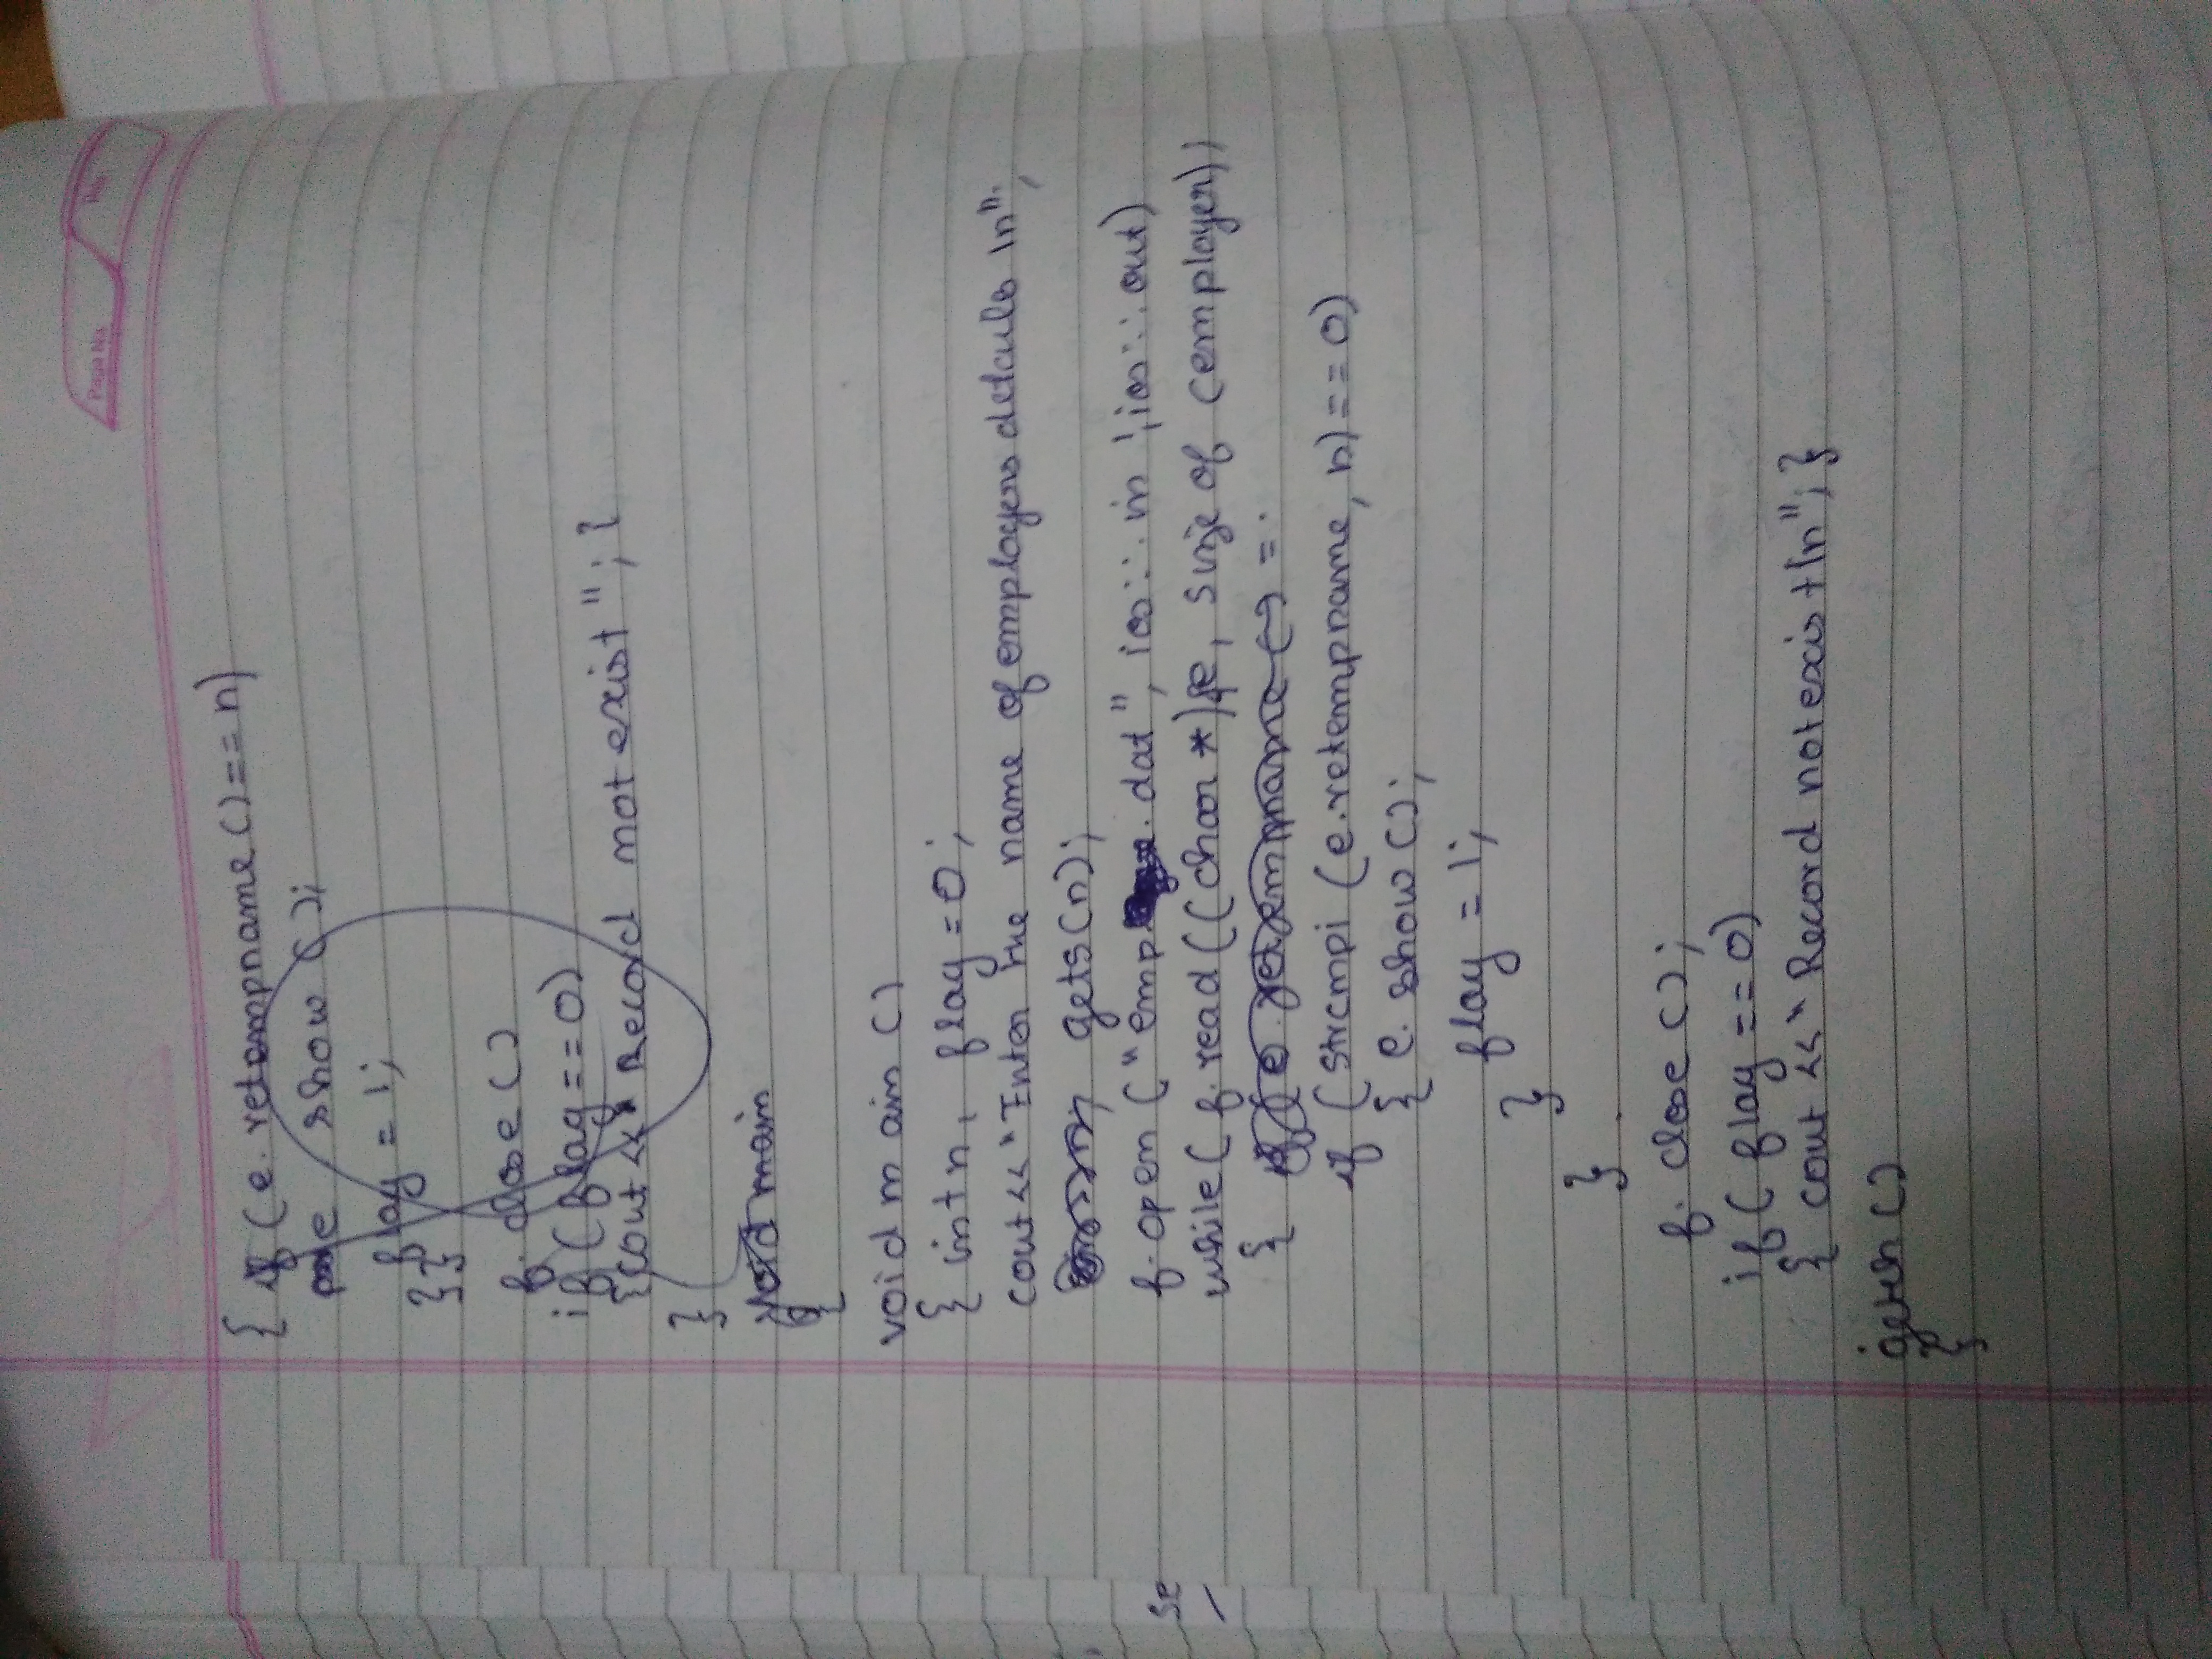 Page No.
No.
{ if (e. retempname () == n)
e show ();
flag = 1;
}}
f. close ()
if (flag == 0)
{cout << " Record not exist " ; }
}
void main
{
void main ()
{ int n, flag = 0 ;
cout << " Enter the name of employers details \n" ;
gets (n) ;
f. open ( " emp . dat " , ios :: in | ios :: out )
while ( f. read ( ( char * ) &e , size of (employer) )
{ if ( e. retempname () = .
if ( strcmpi ( e. retempname , n) == 0 )
{ e. show () ;
flag = 1;
}
}
f. close () ;
if ( flag == 0 )
{ cout << " Record not exist \n" ; }
getch ()
}
Se